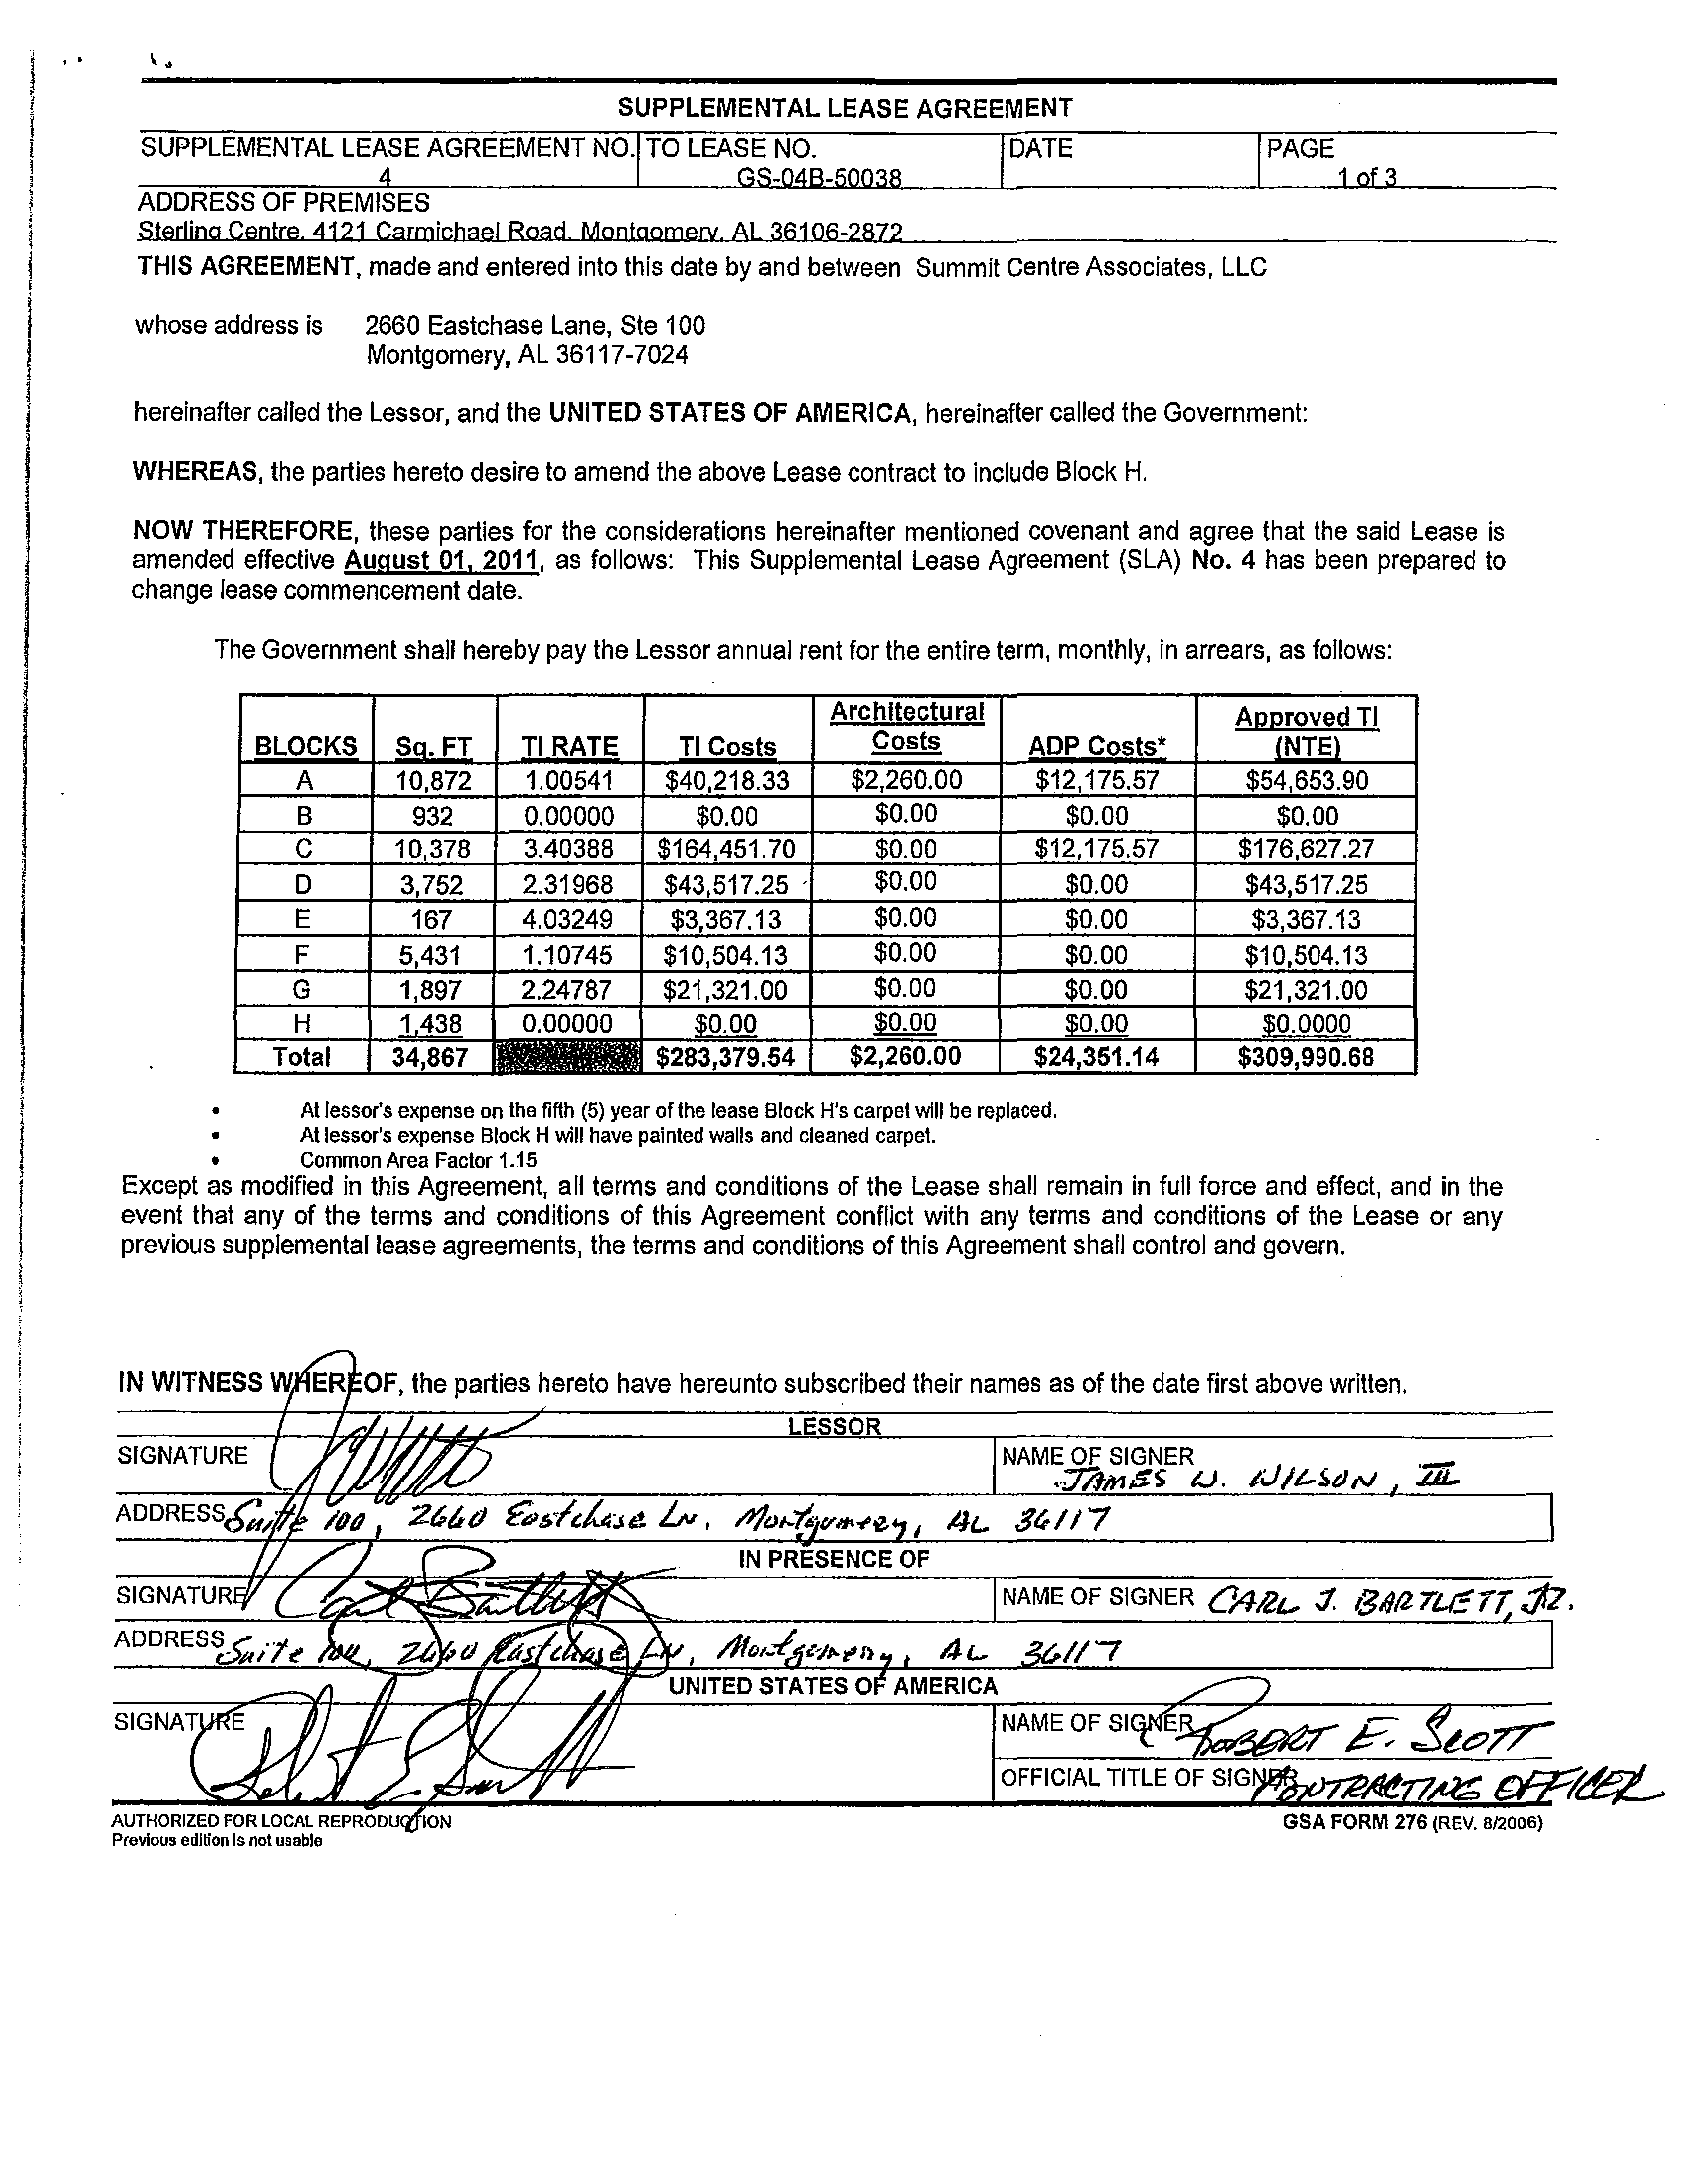 SUPPLEMENTAL LEASE AGREEMENT
SUPPLEMENTAL LEASE AGREEMENT NO. TO LEASE NO. DATE PAGE
4 GS-04B-50038 1 of 3
ADDRESS OF PREMISES
Sterling Centre, 4121 Carmichael Road, Montgomery, AL 36106-2872
THIS AGREEMENT, made and entered into this date by and between Summit Centre Associates, LLC
whose address is 2660 Eastchase Lane, Ste 100
Montgomery, AL 36117-7024
hereinafter called the Lessor, and the UNITED STATES OF AMERICA, hereinafter called the Government:
WHEREAS, the parties hereto desire to amend the above Lease contract to include Block H.
NOW THEREFORE, these parties for the considerations hereinafter mentioned covenant and agree that the said Lease is
amended effective August 01, 2011, as follows: This Supplemental Lease Agreement (SLA) No. 4 has been prepared to
change lease commencement date.
The Government shall hereby pay the Lessor annual rent for the entire term, monthly, in arrears, as follows:
BLOCKS Sq. FT TI RATE TI Costs Architectural Costs ADP Costs* Approved TI (NTE)
A 10,872 1.00541 $40,218.33 $2,260.00 $12,175.57 $54,653.90
B 932 0.00000 $0.00 $0.00 $0.00 $0.00
C 10,378 3.40388 $164,451.70 $0.00 $12,175.57 $176,627.27
D 3,752 2.31968 $43,517.25 $0.00 $0.00 $43,517.25
E 167 4.03249 $3,367.13 $0.00 $0.00 $3,367.13
F 5,431 1.10745 $10,504.13 $0.00 $0.00 $10,504.13
G 1,897 2.24787 $21,321.00 $0.00 $0.00 $21,321.00
H 1,438 0.00000 $0.00 $0.00 $0.00 $0.0000
Total 34,867 $283,379.54 $2,260.00 $24,351.14 $309,990.68
• At lessor's expense on the fifth (5) year of the lease Block H's carpet will be replaced.
• At lessor's expense Block H will have painted walls and cleaned carpet.
• Common Area Factor 1.15
Except as modified in this Agreement, all terms and conditions of the Lease shall remain in full force and effect, and in the
event that any of the terms and conditions of this Agreement conflict with any terms and conditions of the Lease or any
previous supplemental lease agreements, the terms and conditions of this Agreement shall control and govern.
IN WITNESS WHEREOF, the parties hereto have hereunto subscribed their names as of the date first above written.
LESSOR
SIGNATURE NAME OF SIGNER
JAMES W. WILSON, III
ADDRESS Suite 100, 2660 Eastchase LN, Montgomery, AL 36117
IN PRESENCE OF
SIGNATURE Carl Bartlett NAME OF SIGNER CARL J. BARTLETT, JR.
ADDRESS Suite 100, 2660 Eastchase LN, Montgomery, AL 36117
UNITED STATES OF AMERICA
SIGNATURE Robert E. Scott NAME OF SIGNER ROBERT E. SCOTT
OFFICIAL TITLE OF SIGNER CONTRACTING OFFICER
AUTHORIZED FOR LOCAL REPRODUCTION GSA FORM 276 (REV. 8/2006)
Previous edition is not usable